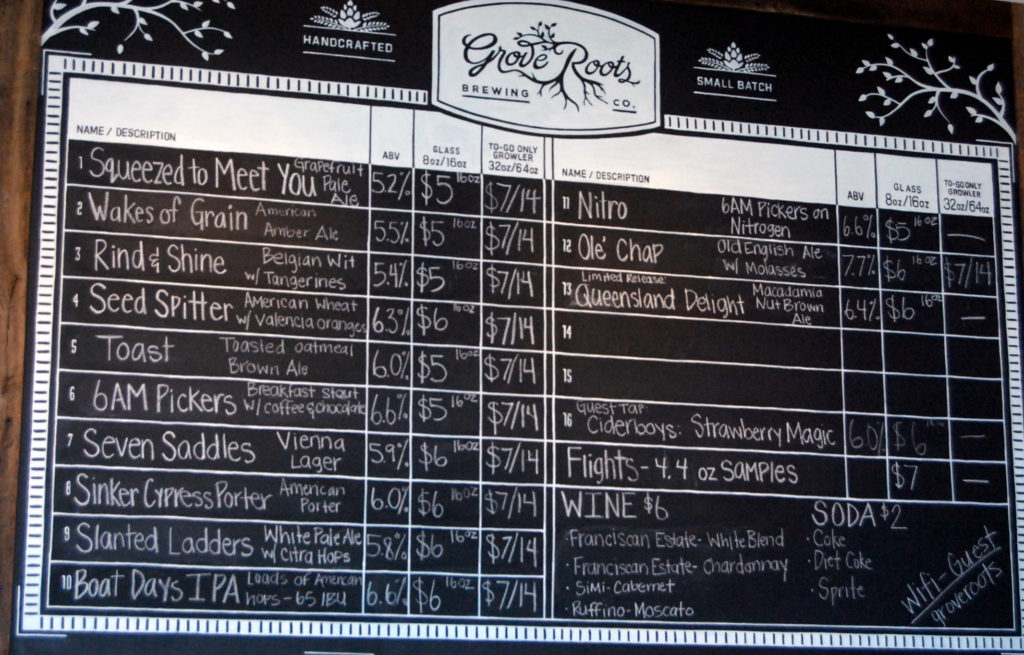 HANDCRAFTED
Grove Roots
BREWING CO.
SMALL BATCH
NAME / DESCRIPTION
ABV
GLASS
8oz/16oz
TO-GO ONLY
GROWLER
32oz/64oz
1 Squeezed to Meet You Grapefruit Pale Ale 5.2% $5 16oz $7/14
2 Wakes of Grain American Amber Ale 5.5% $5 16oz $7/14
3 Rind & Shine Belgian Wit w/ Tangerines 5.4% $5 16oz $7/14
4 Seed Spitter American Wheat w/ Valencia oranges 6.3% $6 16oz $7/14
5 Toast Toasted oatmeal Brown Ale 6.0% $5 16oz $7/14
6 6AM Pickers Breakfast Stout w/ coffee & chocolate 6.6% $5 16oz $7/14
7 Seven Saddles Vienna Lager 5.9% $6 16oz $7/14
8 Sinker Cypress Porter American Porter 6.0% $6 16oz $7/14
9 Slanted Ladders White Pale Ale w/ Citra Hops 5.8% $6 16oz $7/14
10 Boat Days IPA Loads of American hops - 65 IBU 6.6% $6 16oz $7/14
NAME / DESCRIPTION
ABV
GLASS
8oz/16oz
TO-GO ONLY
GROWLER
32oz/64oz
11 Nitro 6AM Pickers on Nitrogen 6.6% $5 16oz —
12 Ole' Chap Old English Ale w/ Molasses 7.7% $6 16oz $7/14
Limited Release:
13 Queensland Delight Macadamia Nut Brown Ale 6.4% $6 16oz —
14
15
Guest Tap:
16 Ciderboys: Strawberry Magic 6.0% $6 16oz —
Flights - 4, 4 oz samples $7 —
WINE $6
· Franciscan Estate - White Blend
· Franciscan Estate - Chardonnay
· Simi - Cabernet
· Ruffino - Moscato
SODA $2
· Coke
· Diet Coke
· Sprite
Wifi - Guest
groveroots